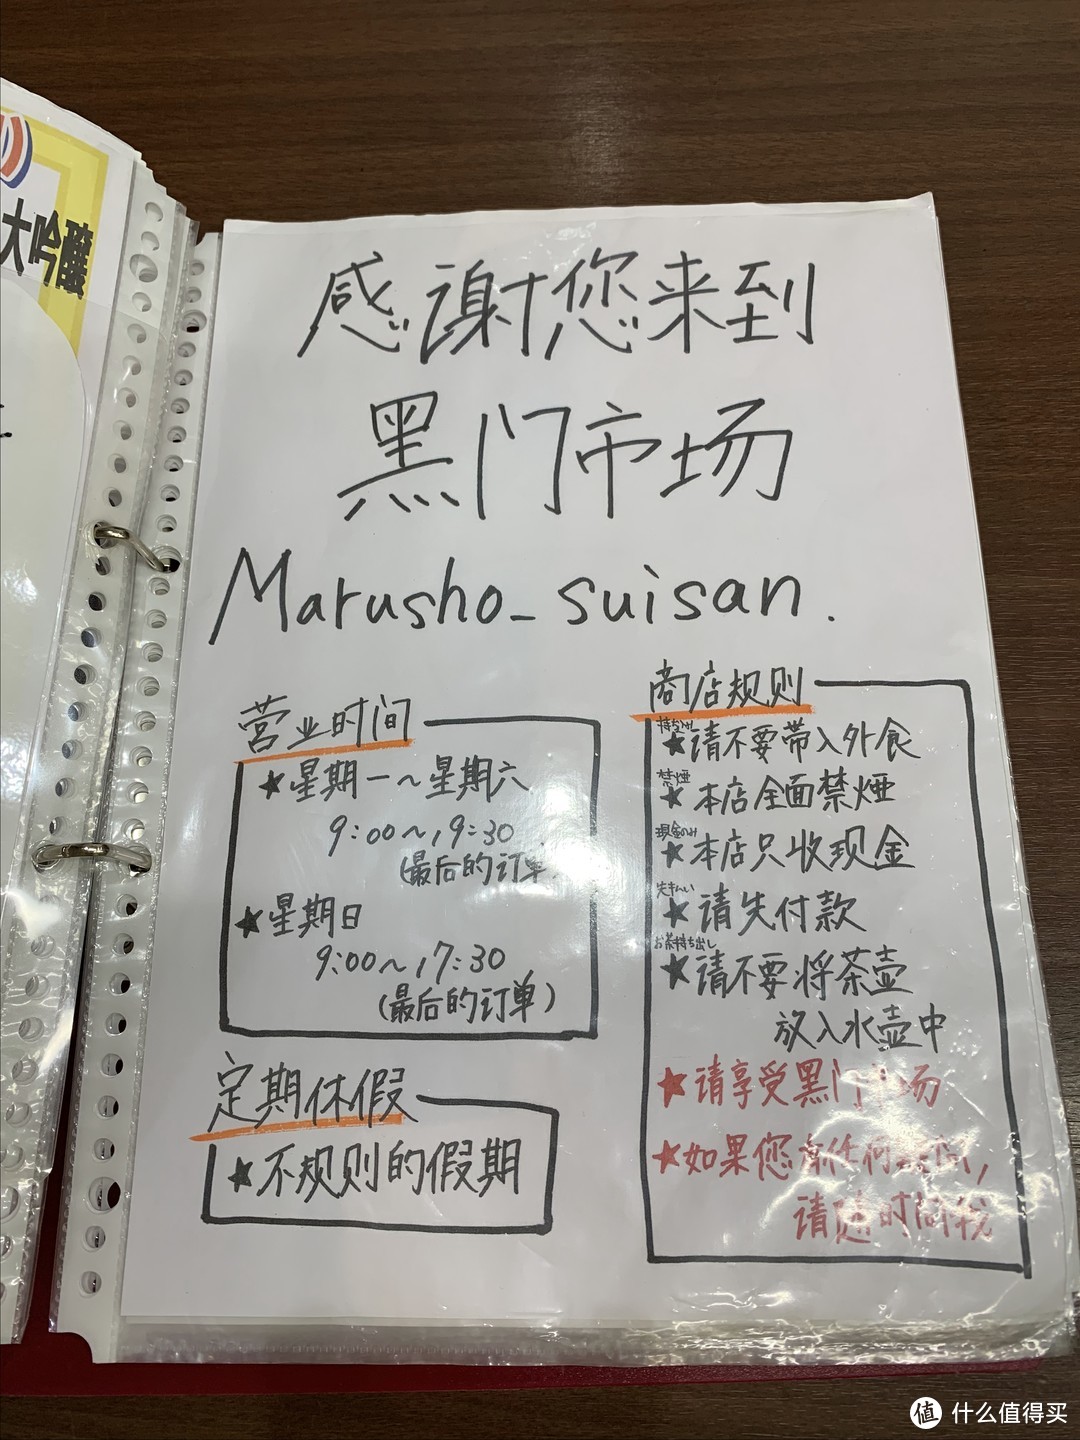 大吟醸
感谢您来到
黑门市场
Marusho_suisan.
营业时间
★星期一～星期六
9:00～19:30
(最后的订单
★星期日
9:00～17:30
(最后的订单)
定期休假
★不规则的假期
商店规则
★请不要带入外食
禁煙
★本店全面禁烟
現金のみ
★本店只收现金
先払い
★请先付款
お茶持ち出し
★请不要将茶壶
放入水壶中
★请享受黑门市场
★如果您有任何
请随时问我
值 什么值得买